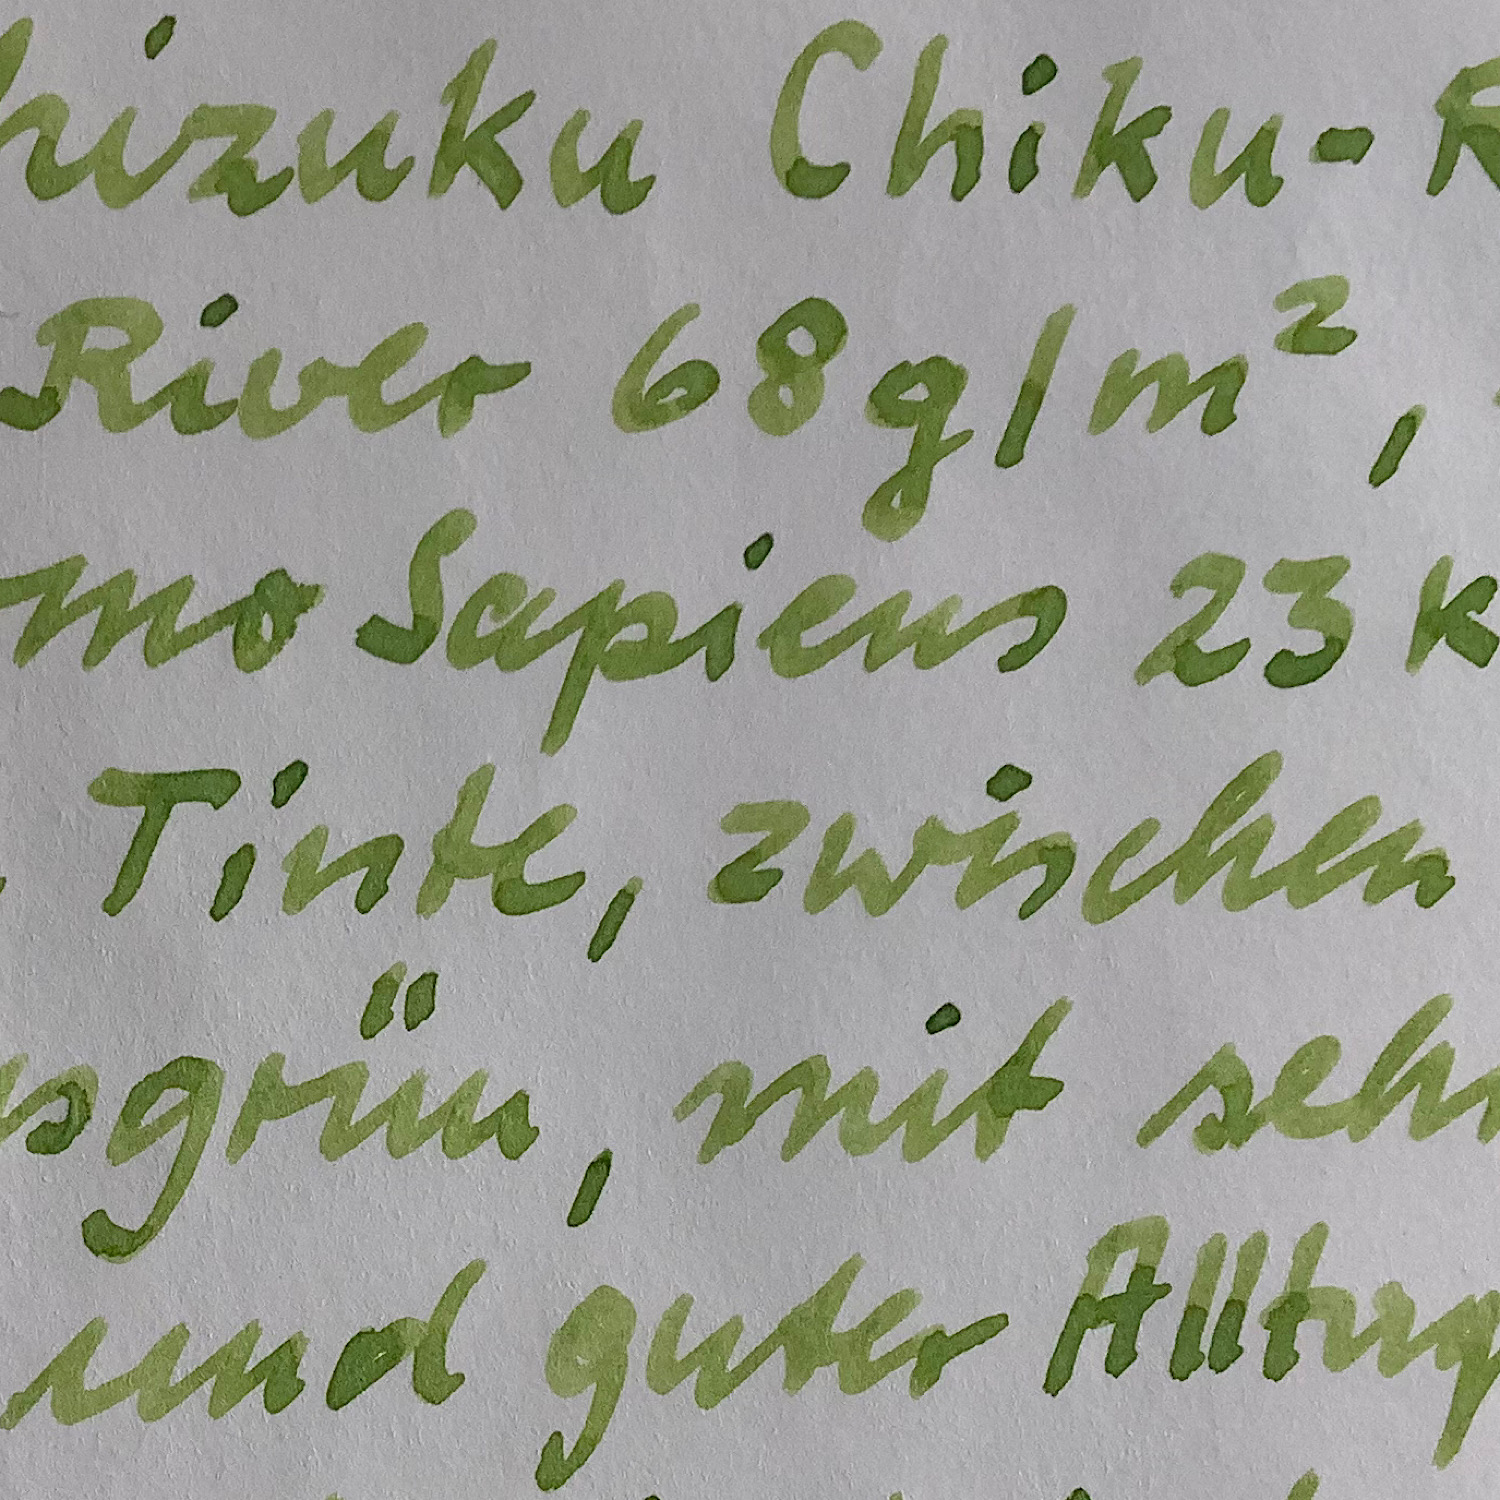 hizuku Chiku-R
River 68g/m²,
mo Sapiens 23 K
Tinte, zwischen
sgrün, mit sehr
und guter Alltag